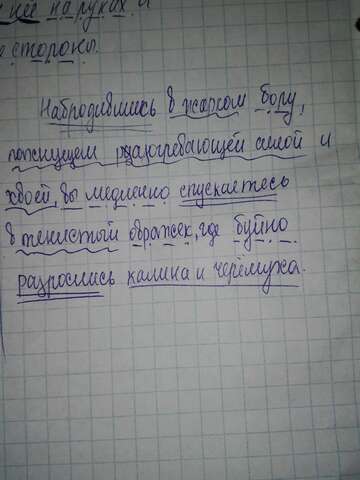 на руках и
стороны.
Набродившись в жарком бору,
пахнущем разогревающей смолой и
хвоей, вы медленно спускаетесь
в тенистый овражек, где буйно
разрослись калина и черёмуха.